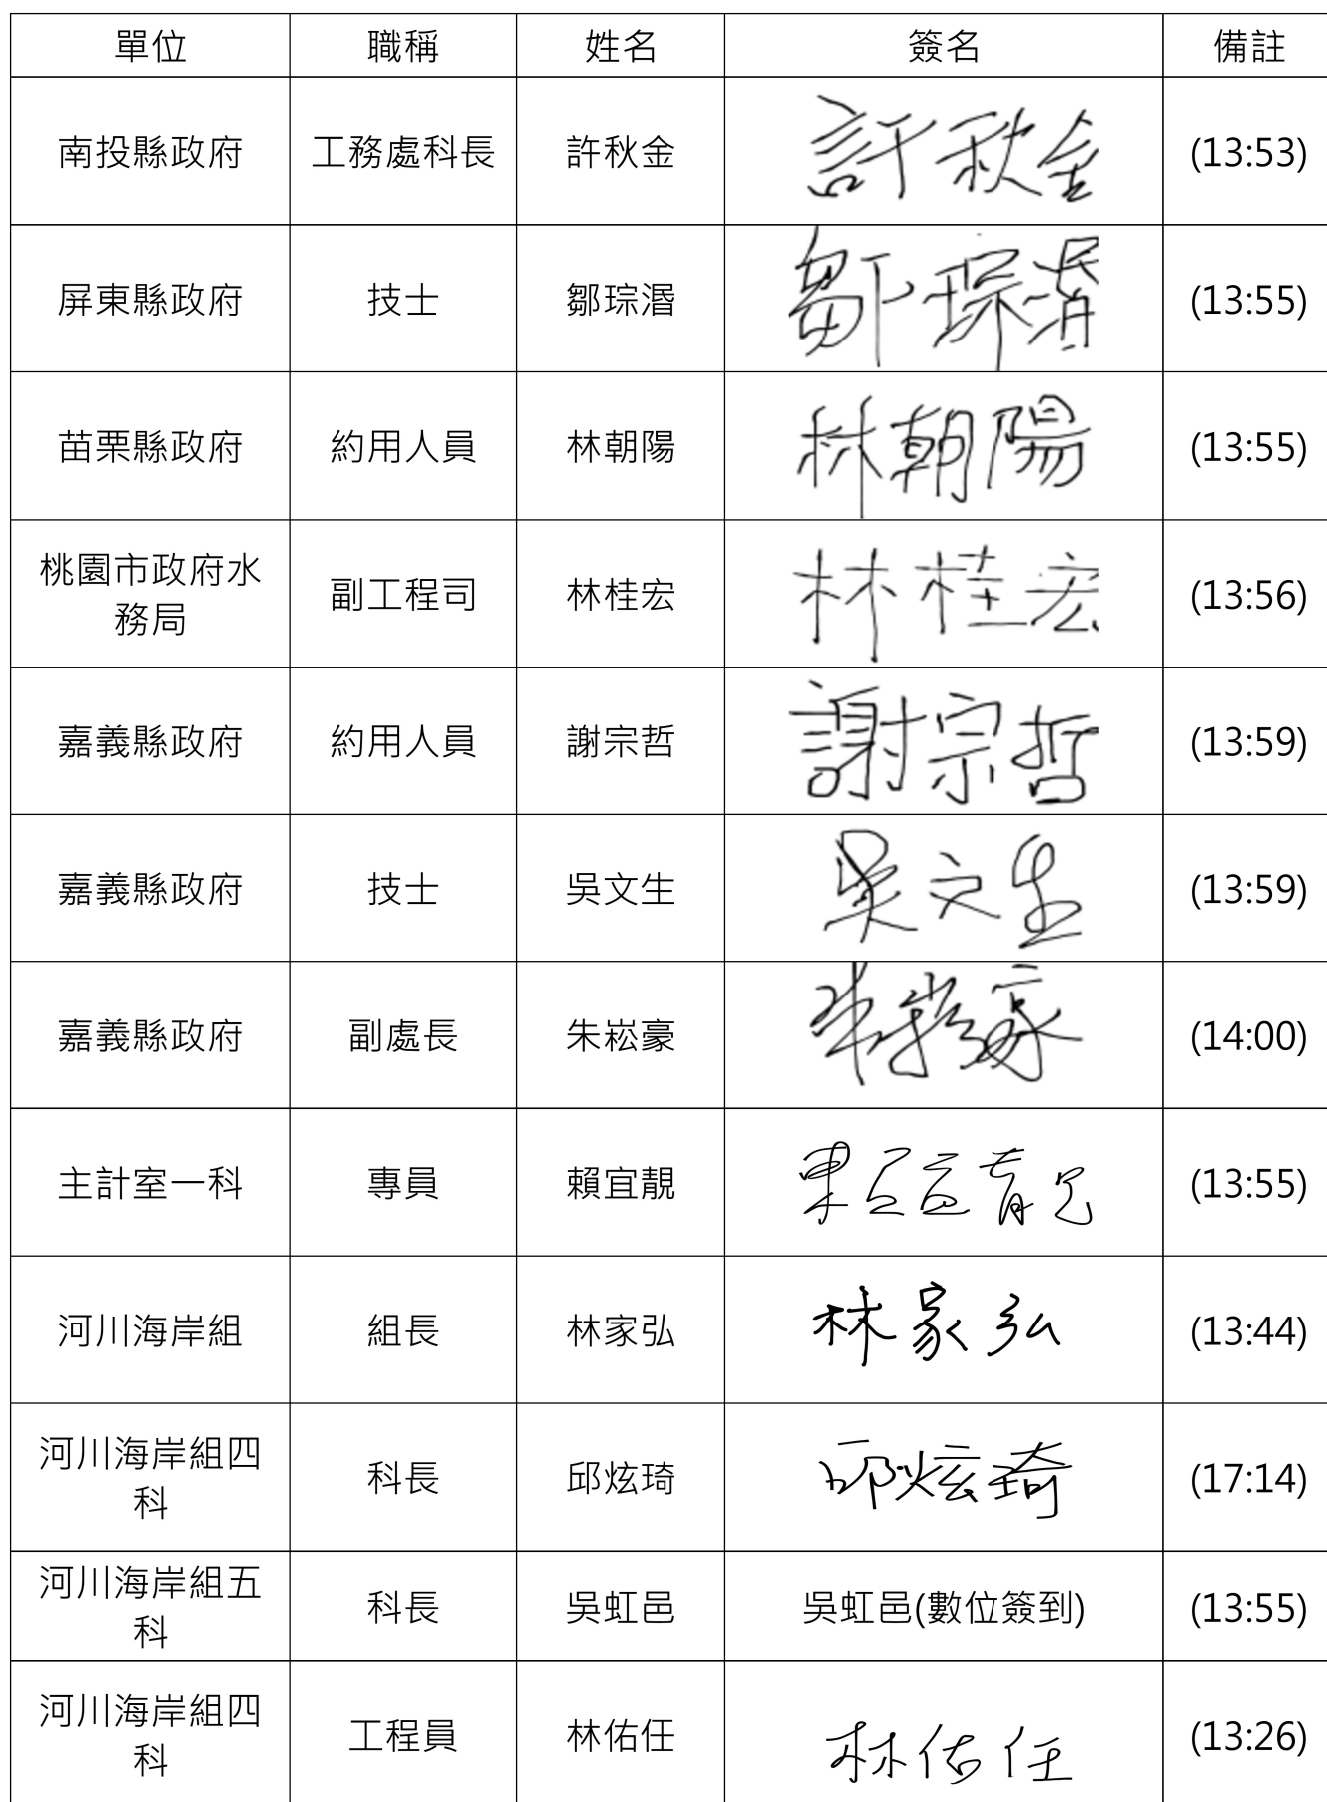 單位 職稱 姓名 簽名 備註
南投縣政府 工務處科長 許秋金 許秋金 (13:53)
屏東縣政府 技士 鄒琮湣 鄒琮湣 (13:55)
苗栗縣政府 約用人員 林朝陽 林朝陽 (13:55)
桃園市政府水
務局 副工程司 林桂宏 林桂宏 (13:56)
嘉義縣政府 約用人員 謝宗哲 謝宗哲 (13:59)
嘉義縣政府 技士 吳文生 吳文生 (13:59)
嘉義縣政府 副處長 朱崧豪 朱崧豪 (14:00)
主計室一科 專員 賴宜靚 賴宜靚 (13:55)
河川海岸組 組長 林家弘 林家弘 (13:44)
河川海岸組四
科 科長 邱炫琦 邱炫琦 (17:14)
河川海岸組五
科 科長 吳虹邑 吳虹邑(數位簽到) (13:55)
河川海岸組四
科 工程員 林佑任 林佑任 (13:26)